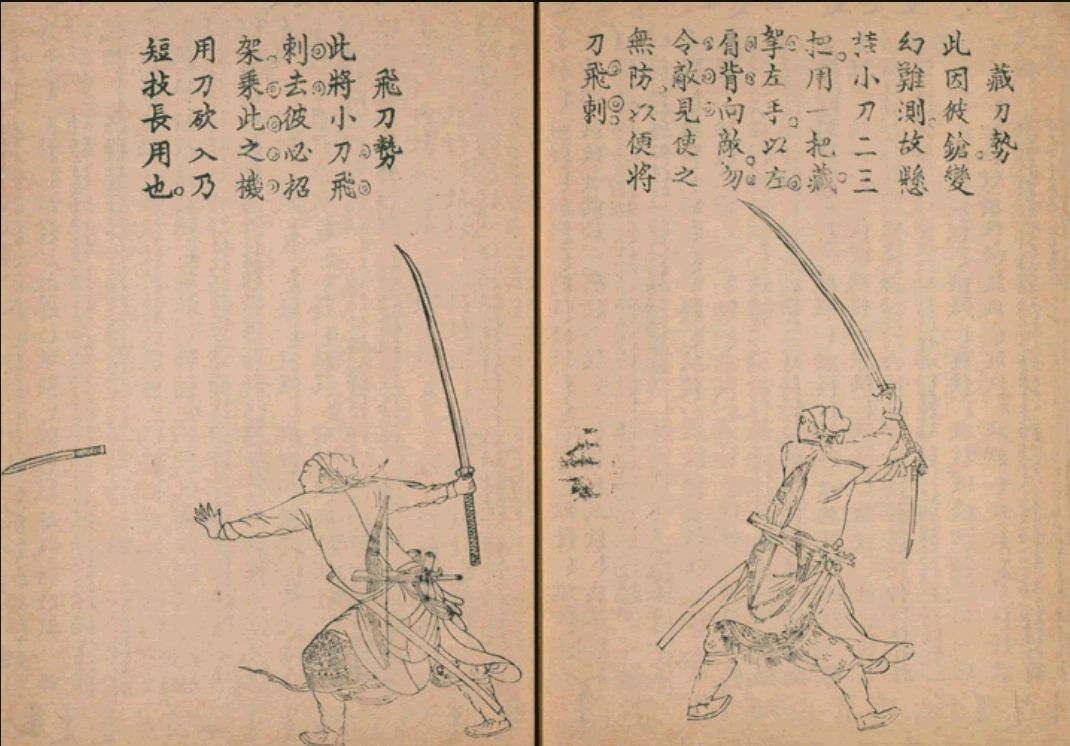 藏刀勢
此因彼鎗變
幻難測故懸
小刀二三
把用一把藏
挐左手以左
肩背向敵勿
令敵見使之
無防以便將
刀飛刺
飛刀勢
此將小刀飛
刺去彼必招
架乘此之機
用刀砍入乃
短技長用也